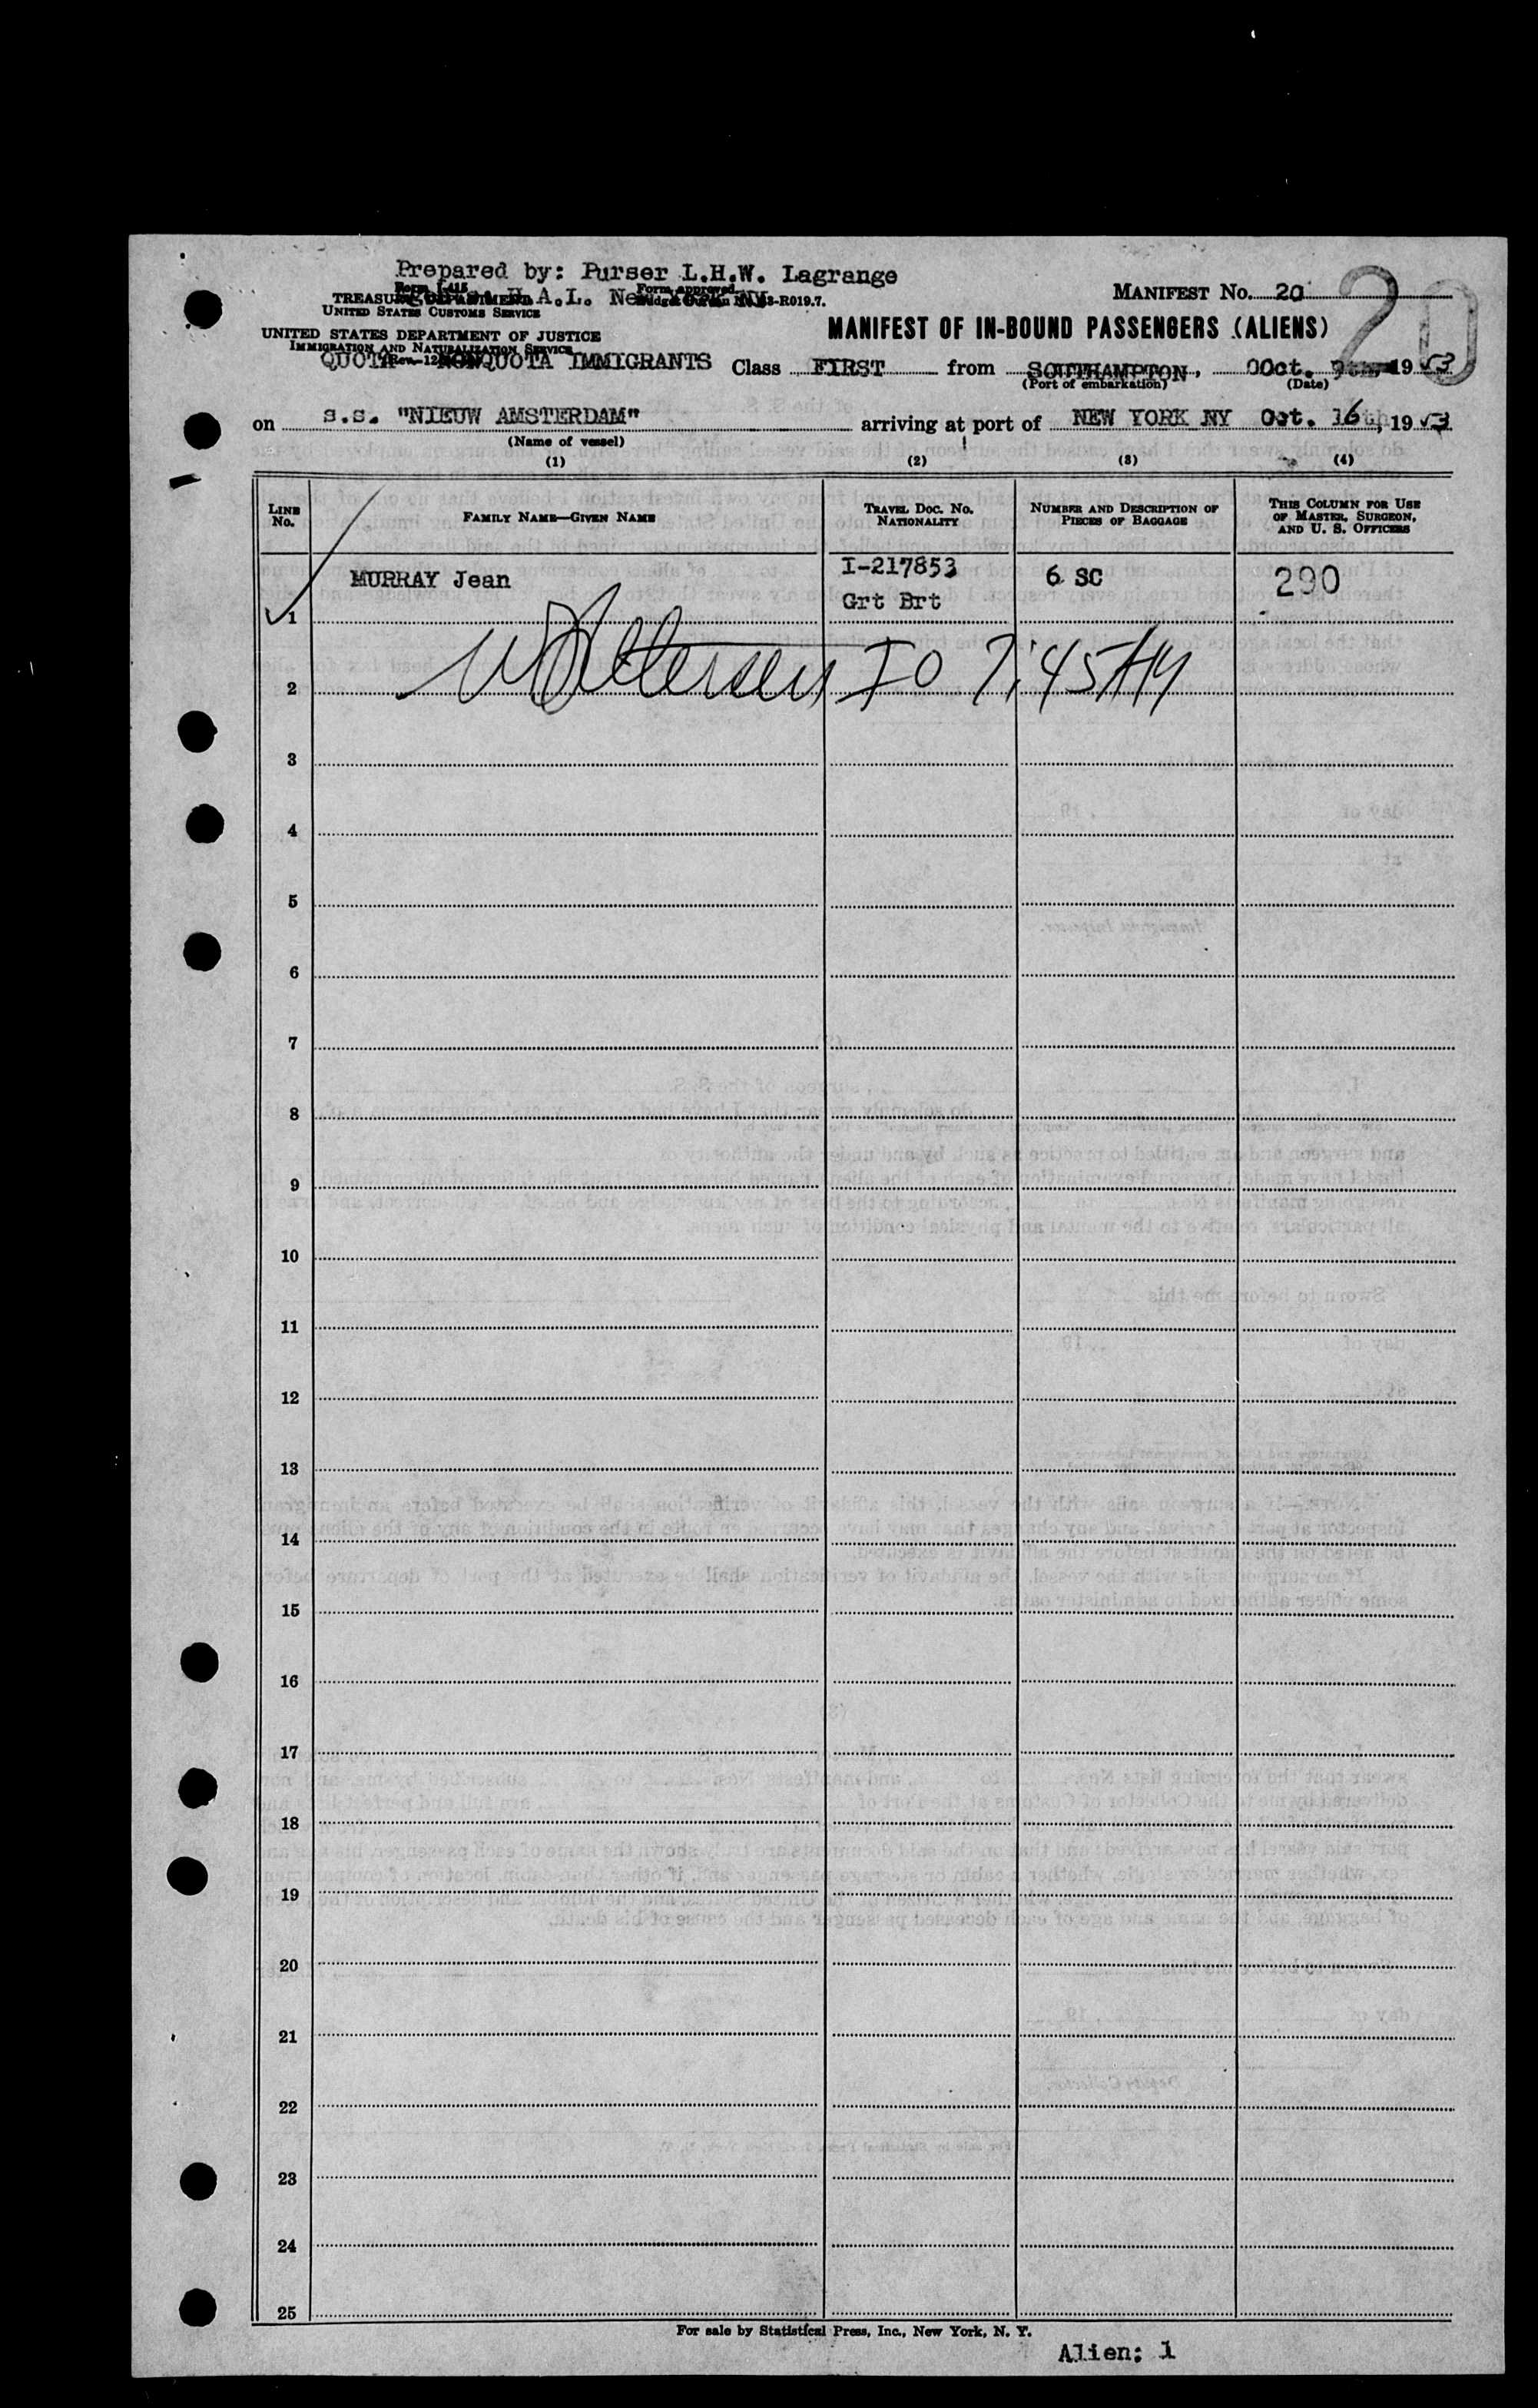 Prepared by: Purser L.H.W. Lagrange
Form I-415
TREASURY DEPARTMENT H.A.L. New York NY
Form approved.
UNITED STATES CUSTOMS SERVICE
MANIFEST NO. 20
20
UNITED STATES DEPARTMENT OF JUSTICE
IMMIGRATION AND NATURALIZATION SERVICE
MANIFEST OF IN-BOUND PASSENGERS (ALIENS)
QUOTA NONQUOTA IMMIGRANTS Class FIRST from SOUTHAMPTON, Oct. 1953
(Port of embarkation) (Date)
on s.s. "NIEUW AMSTERDAM" arriving at port of NEW YORK NY Oct. 16th, 1953
(Name of vessel)
(1) (2) (3) (4)
LINE NO. FAMILY NAME—GIVEN NAME TRAVEL DOC. NO. NATIONALITY NUMBER AND DESCRIPTION OF PIECES OF BAGGAGE THIS COLUMN FOR USE OF MASTER, SURGEON, AND U. S. OFFICERS
MURRAY Jean I-217853 6 SC 290
1 Grt Brt
2 IO 7:45AM
3
4
5
6
7
8
9
10
11
12
13
14
15
16
17
18
19
20
21
22
23
24
25
For sale by Statistical Press, Inc., New York, N. Y.
Alien: 1